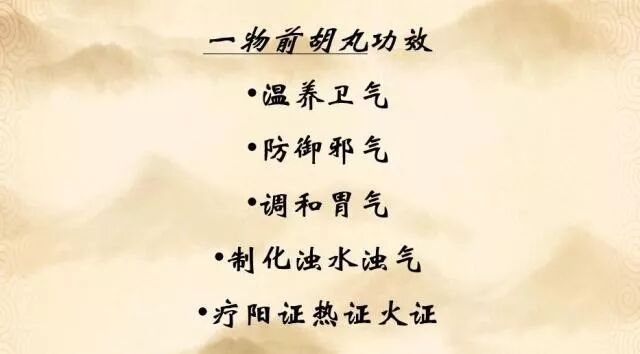 一物前胡丸功效
•温养卫气
•防御邪气
•调和胃气
•制化浊水浊气
•疗阳证热证火证